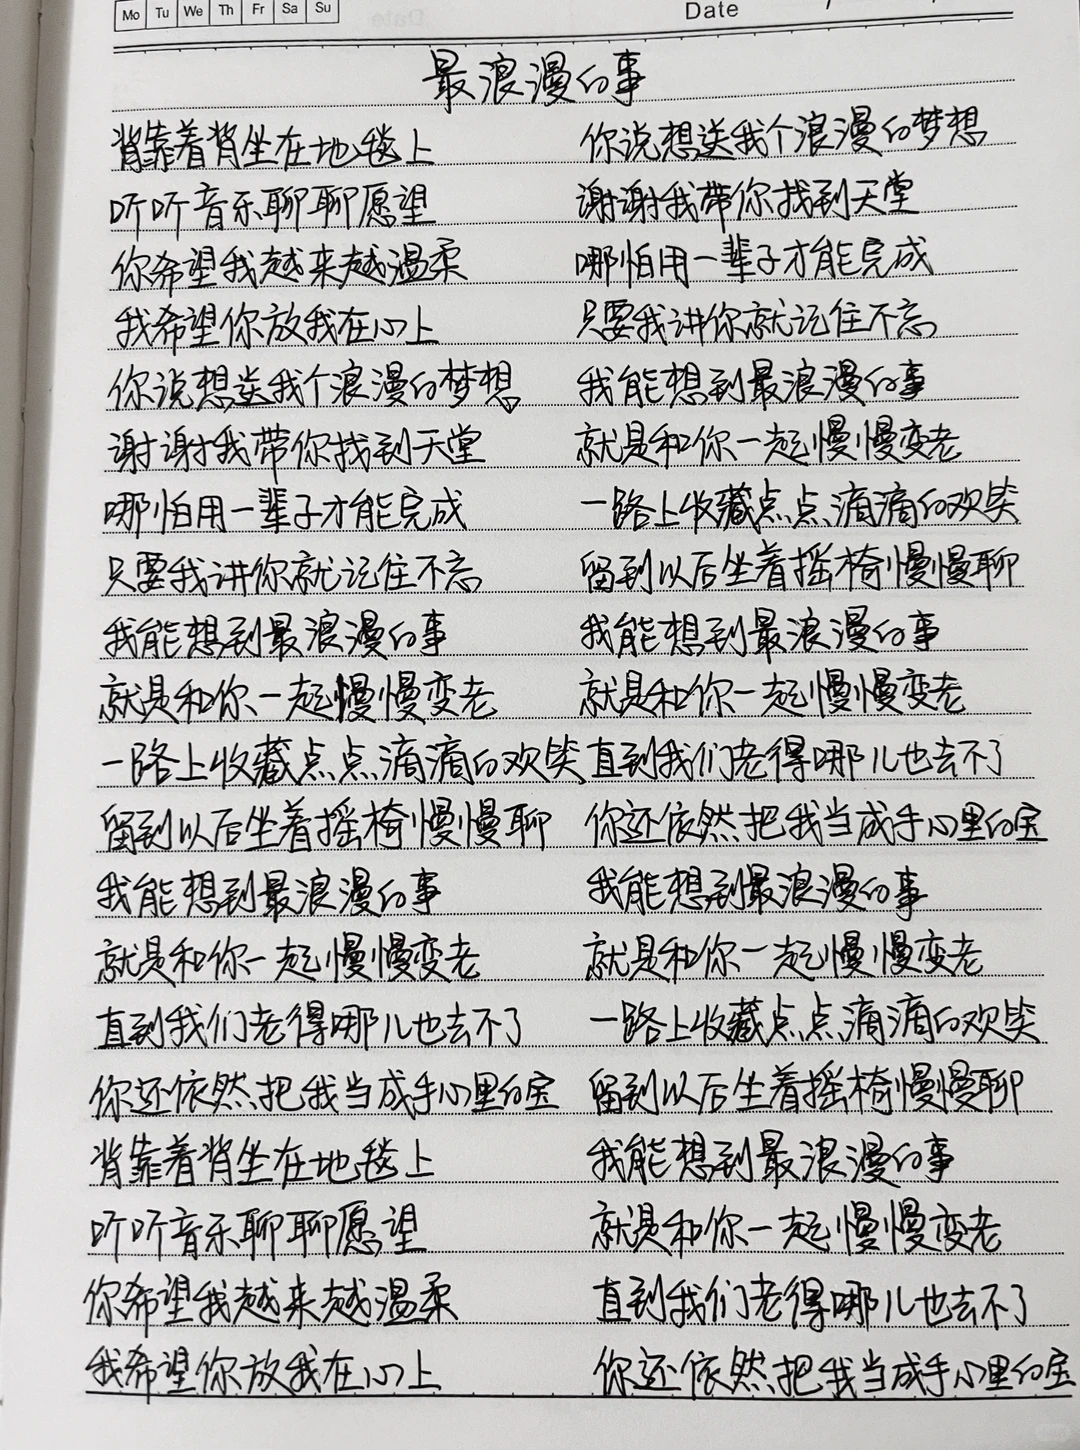 Mo Tu We Th Fr Sa Su
Date
最浪漫的事
背靠着背坐在地毯上
听听音乐聊聊愿望
你希望我越来越温柔
我希望你放我在心上
你说想送我个浪漫的梦想
谢谢我带你找到天堂
哪怕用一辈子才能完成
只要我讲你就记住不忘
我能想到最浪漫的事
就是和你一起慢慢变老
一路上收藏点点滴滴的欢笑
留到以后坐着摇椅慢慢聊
我能想到最浪漫的事
就是和你一起慢慢变老
直到我们老得哪儿也去不了
你还依然把我当成手心里的宝
背靠着背坐在地毯上
听听音乐聊聊愿望
你希望我越来越温柔
我希望你放我在心上
你说想送我个浪漫的梦想
谢谢我带你找到天堂
哪怕用一辈子才能完成
只要我讲你就记住不忘
我能想到最浪漫的事
就是和你一起慢慢变老
一路上收藏点点滴滴的欢笑
留到以后坐着摇椅慢慢聊
我能想到最浪漫的事
就是和你一起慢慢变老
直到我们老得哪儿也去不了
你还依然把我当成手心里的宝
我能想到最浪漫的事
就是和你一起慢慢变老
一路上收藏点点滴滴的欢笑
留到以后坐着摇椅慢慢聊
我能想到最浪漫的事
就是和你一起慢慢变老
直到我们老得哪儿也去不了
你还依然把我当成手心里的宝